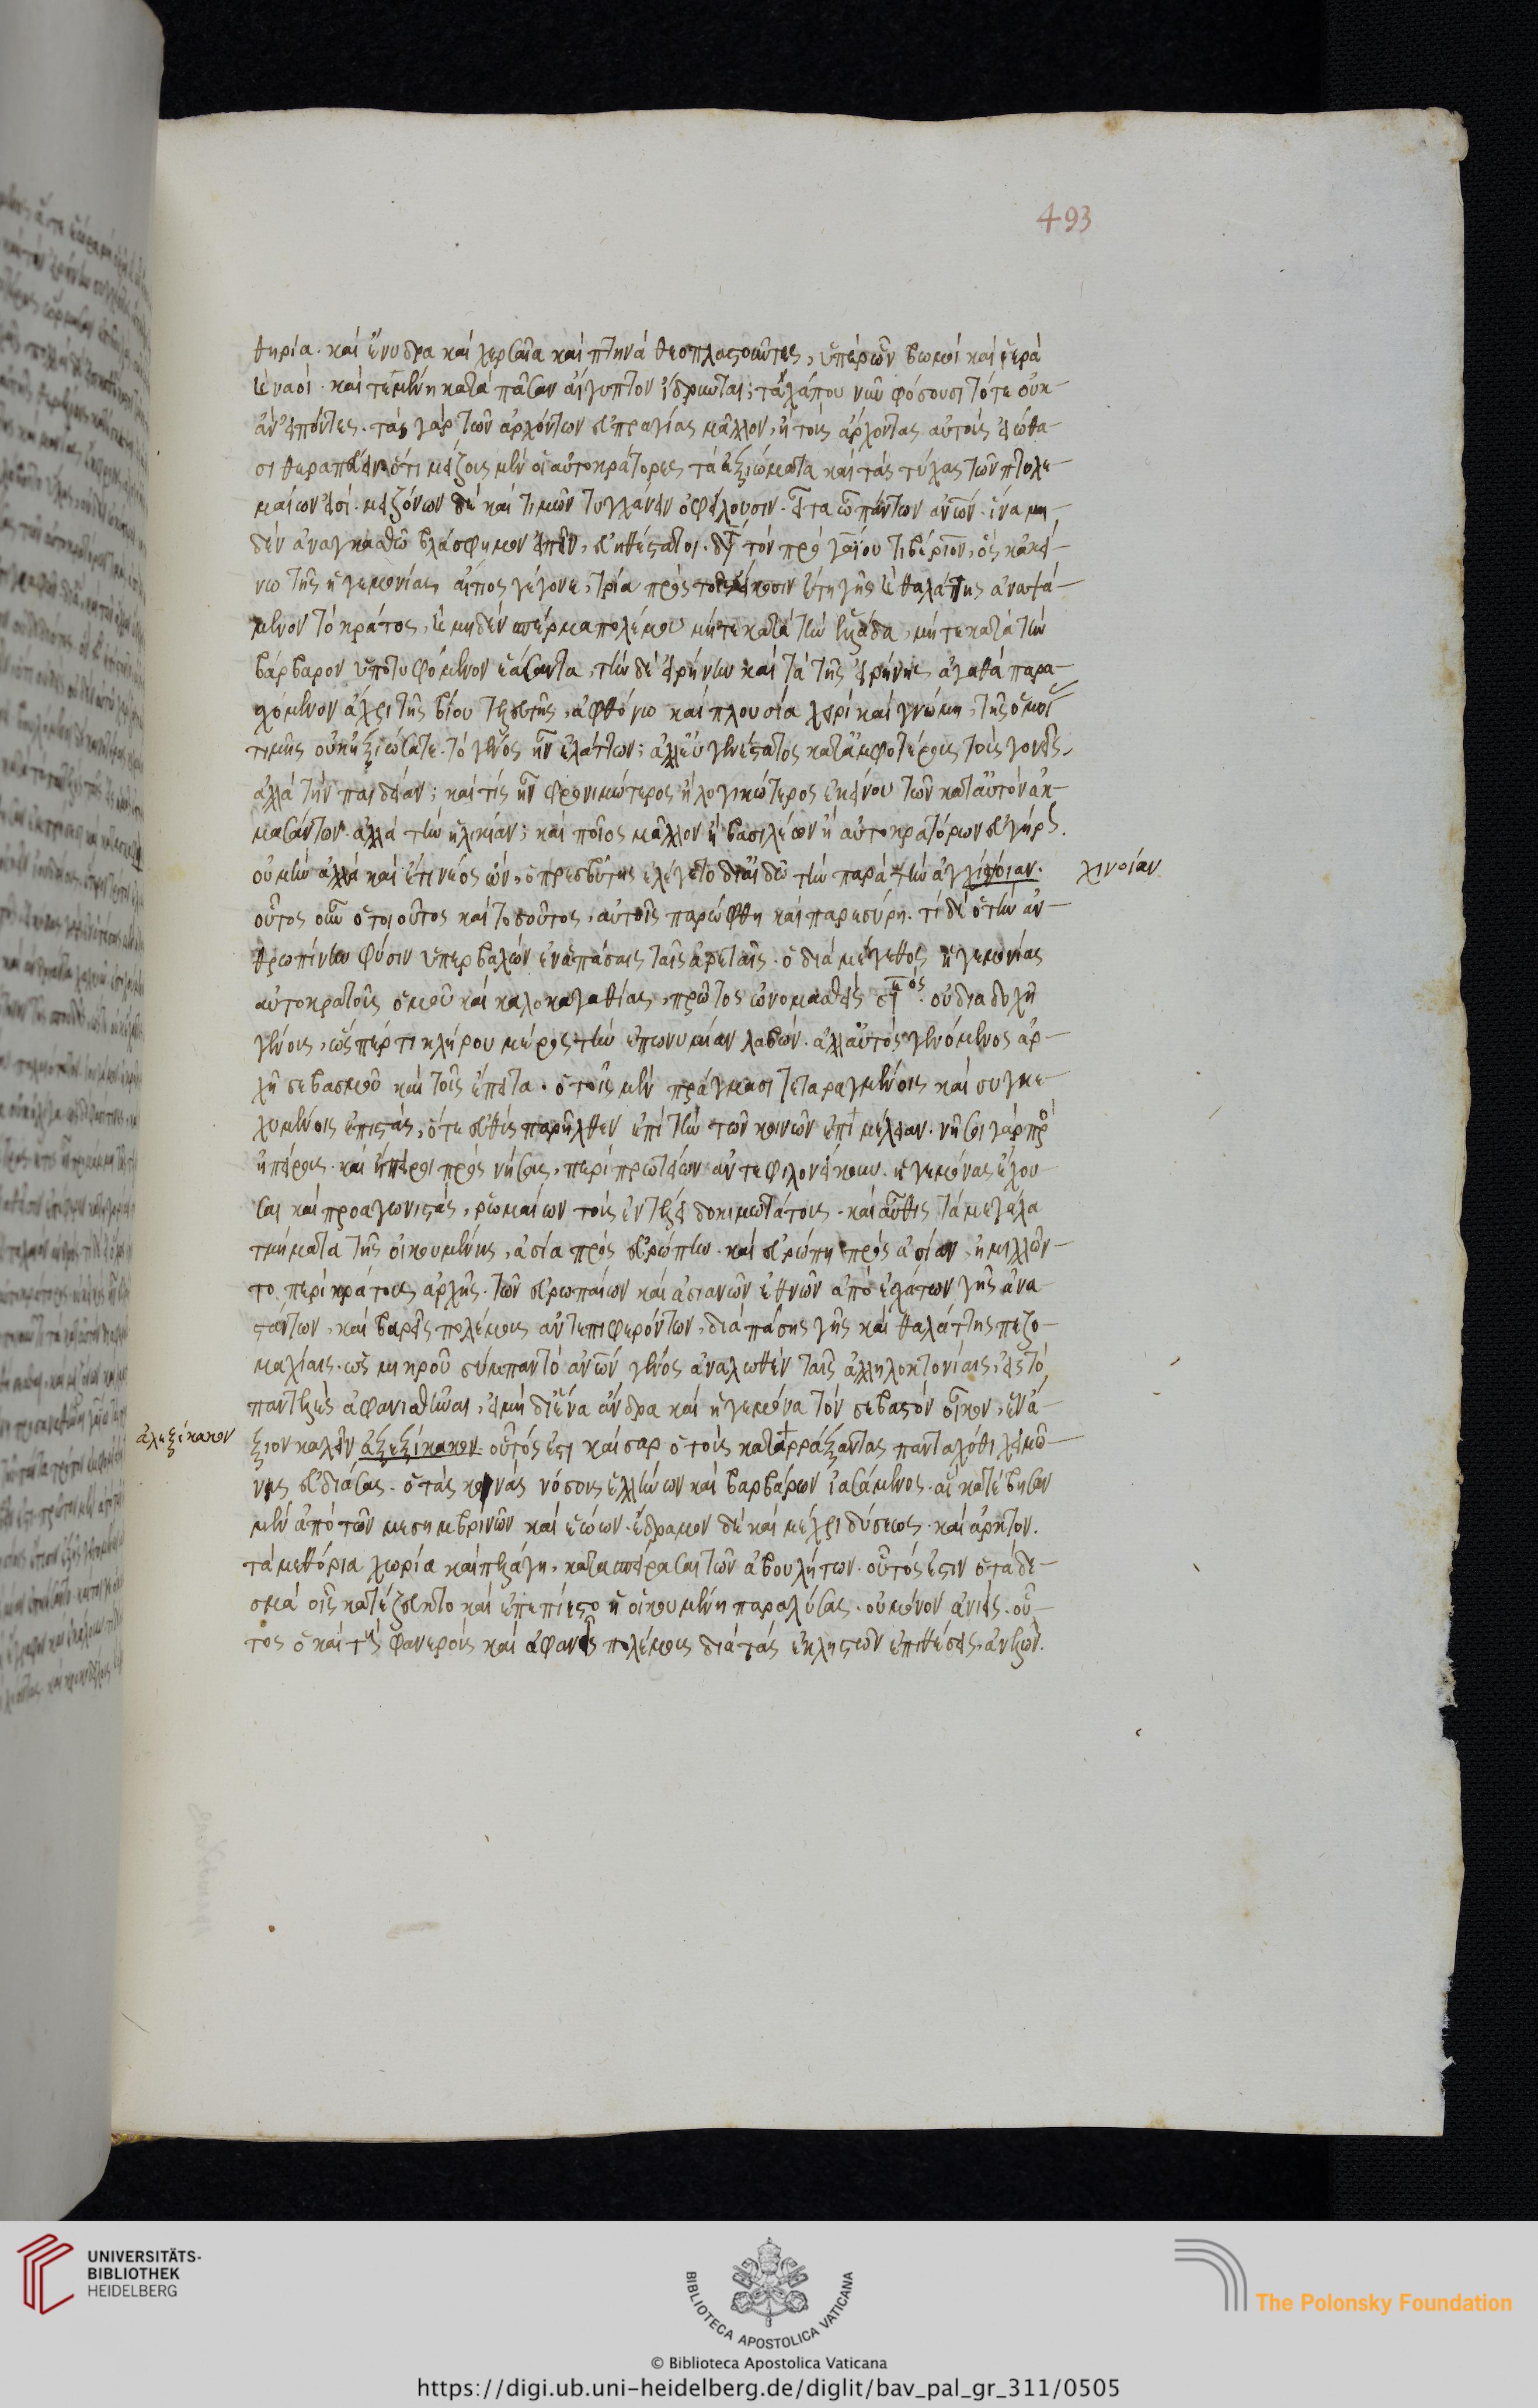 493
θηρία. καὶ ἔνυδρα καὶ χερσαῖα καὶ πτηνὰ θεοπλαστοῦντες, ὑπὲρ ὧν βωμοὶ καὶ ἱερὰ
καὶ ναοὶ. καὶ τεμένη κατὰ πᾶσαν αἴγυπτον ἵδρυνται; τάχα που νῦν φήσουσι τότε οὐκ
ἂν εἰπόντες. τὰς γὰρ τῶν ἀρχόντων εὐπραγίας μᾶλλον, ἢ τοὺς ἄρχοντας αὐτοὺς εἰώθα-
σι θεραπεύειν ὅτι μείζους μὲν οἱ αὐτοκράτορες τὰ ἀξιώματα καὶ τὰς τύχας τῶν πτολε-
μαίων εἰσί. μειζόνων δὲ καὶ τιμῶν τυγχάνειν ὀφείλουσιν. εἶτα ὦ πάντων ἀνῶν. ἵνα μη-
δὲν ἀναγκασθῶ βλάσφημον εἰπεῖν, εὐηθέστατοι. διατί τὸν πρὸ γαΐου τιβέριον, ὃς κἀκεί-
νω τῆς ἡγεμονίας αἴτιος γέγονε, τρία πρὸς τοῖς εἴκοσιν ἔτη γῆς καὶ θαλάττης ἀναψά-
μενον τὸ κράτος, καὶ μηδὲν σπέρμα πολέμου μήτε κατὰ τὴν ἑλλάδα, μήτε κατὰ τὴν
βάρβαρον ὑποτυφόμενον ἐάσαντα, τὴν δὲ εἰρήνην καὶ τὰ τῆς εἰρήνης ἀγαθὰ παρα-
χόμενον ἄχρι τῆς βίου τελευτῆς, ἀφθόνω καὶ πλουσία χειρὶ καὶ γνώμη, τῆς ὁμοί
τιμῆς οὐκ ἠξιώσατε. τὸ γένος ἦν ἐλάττων; ἀλλ' εὐγενέστατος κατ' ἀμφοτέρους τοὺς γονεῖς,
ἀλλὰ τὴν παιδείαν; καὶ τίς ἦν φρονιμώτερος ἢ λογικώτερος ἐκείνου τῶν κατ' αὐτὸν ἀκ-
μασάντων. ἀλλὰ τὴν ἡλικίαν; καὶ ποῖος μᾶλλον ἢ βασιλέων ἢ αὐτοκρατόρων εὐγήρς.
οὐ μὴν ἀλλὰ καὶ ἔτι νέος ὢν, ὁ πρεσβύτης ἐλέγετο δι' αἰδῶ τὴν παρὰ τὴν ἀγχίνοιαν. χίνοίαν
οὗτος οὖν ὁ τοιοῦτος καὶ τοσοῦτος, αὐτοῖς παρώφθη καὶ παρεσύρη. τί δὲ ὁ τὴν ἀν-
θρωπίνην φύσιν ὑπερβαλὼν ἐν ἁπάσαις ταῖς ἀρεταῖς. ὁ διὰ μέγεθος ἡγεμονίας
αὐτοκρατοῦς ὁμοῦ καὶ καλοκαγαθίας, πρῶτος ὀνομασθεὶς. οὐ διαδοχῆ
γένους, ὥσπερ τι κλήρου μέρος τὴν ἐπωνυμίαν λαβών. ἀλλ' αὐτὸς γενόμενος ἀρ-
χὴ σεβασμοῦ καὶ τοῖς ἔπειτα. ὁ τοῖς μὲν πράγμασι τεταραγμένοις καὶ συγκε-
χυμένοις ἐπιστὰς, ὅτε εὐθὺς παρῆλθεν ἐπὶ τὴν τῶν κοινῶν ἐπιμέλειαν. νῆσοι γὰρ πρὸ
ἠπείρους. καὶ ἤπειροι πρὸς νήσους, περὶ πρωτείων ἀντεφιλονείκουν. ἡγεμόνας ἔχου-
σαι καὶ προαγωνιστὰς, ρωμαίων τοὺς ἐν τέλει δοκιμωτάτους. καὶ αὖθις τὰ μεγάλα
τμήματα τῆς οἰκουμένης, ἀσία πρὸς εὐρώπην. καὶ εὐρώπη πρὸς ἀσίαν, ἡμιλλῶν-
το περὶ κράτους ἀρχῆς. τῶν εὐρωπαίων καὶ ἀσιανῶν ἐθνῶν ἀπὸ ἐσχάτων γῆς ἀνα-
στάντων, καὶ βαρεῖς πολέμους ἀντεπιφερόντων, διὰ πάσης γῆς καὶ θαλάττης πεζο-
μαχίαις. ὡς μικροῦ σύμπαν τὸ ἀνῶν γένος ἀναλωθὲν ταῖς ἀλληλοκτονίαις, εἰς τὸ
παντελὲς ἀφανισθῆναι, εἰ μὴ δι' ἕνα ἄνδρα καὶ ἡγεμόνα τὸν σεβαστὸν οἶκον, ὃν ἄ-
ἀλεξίκακον ξιον καλεῖν ἀξεξίκακον. οὗτός ἐστι καῖσαρ ὁ τοὺς καταρράξαντας πανταχόθι χειμῶ-
νας εὐδιάσας. ὁ τὰς κοινὰς νόσους ἑλλήνων καὶ βαρβάρων ἰασάμενος. αἳ κατέβησαν
μὲν ἀπὸ τῶν μεσημβρινῶν καὶ ἑώων. ἔδραμον δὲ καὶ μέχρι δύσεως. καὶ ἄρκτον.
τὰ μεθόρια χωρία καὶ πελάγη, κατασπείρασαι τῶν ἀβουλήτων. οὗτός ἐστιν ὁ τὰ δε-
σμὰ οἷς κατέζευκτο καὶ ἐπεπίεστο ἡ οἰκουμένη παραλύσας. οὐ μόνον ἀνιεὶς. οὗ-
τος ὁ καὶ τοὺς φανεροὺς καὶ ἀφανεῖς πολέμους διὰ τὰς ἐκ ληστῶν ἐπιθέσεις, ἀνελών.
UNIVERSITÄTS-
BIBLIOTHEK
HEIDELBERG
BIBLIOTECA APOSTOLICA VATICANA
The Polonsky Foundation
© Biblioteca Apostolica Vaticana
https://digi.ub.uni-heidelberg.de/diglit/bav_pal_gr_311/0505